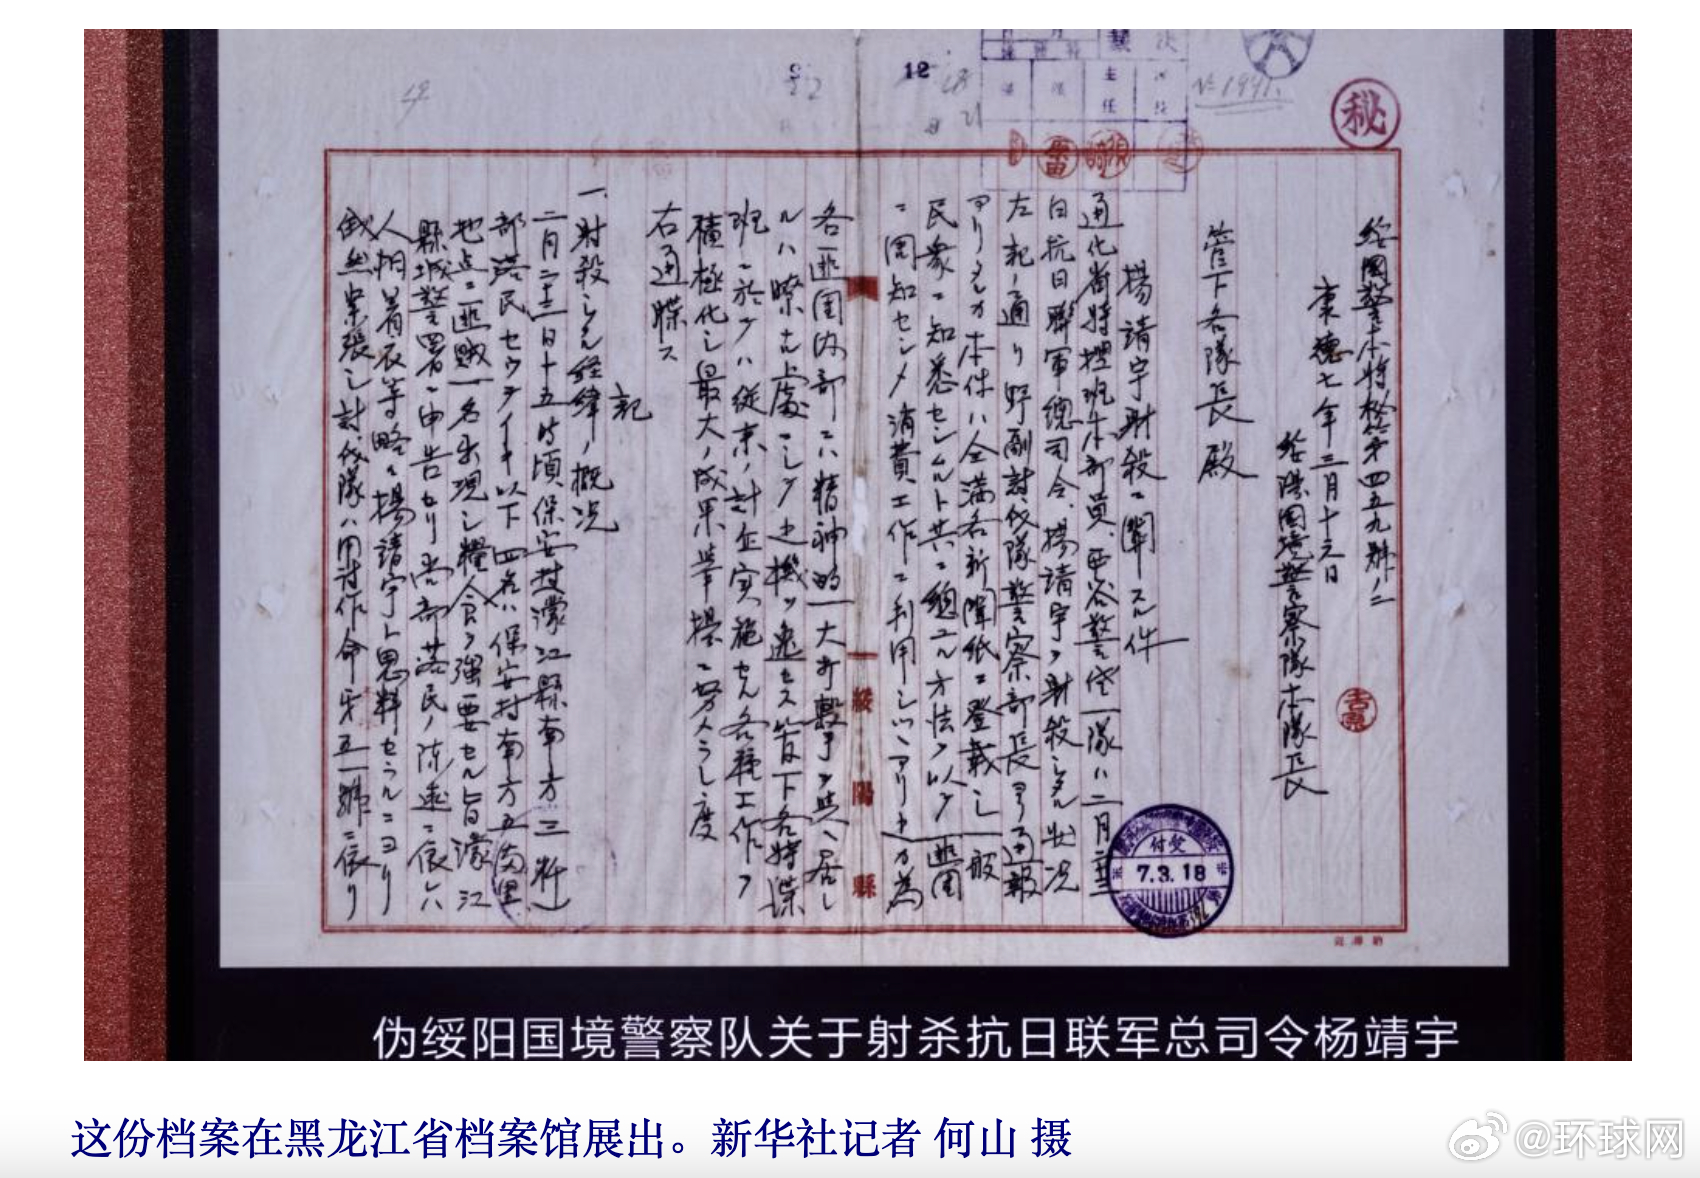 秘
12
No 1991.
主任
綏国警本特秘第四五九號ノ二
康徳七年三月十六日
綏陽国境警察隊本隊長
管下各隊長殿
楊靖宇射殺ニ關スル件
通化省特捜班本部員、西谷警佐一隊ハ二月二十三
日抗日聯軍總司令、楊靖宇ヲ射殺シタル状况
左記ノ通リ野副討伐隊警察部長ヨリ通報
アリタルガ本件ハ全満各新聞紙ニ登載シ一般
民衆ニ知悉センムルト共ニ總ユル方法ヲ以テ匪団
ニ周知センメ消費工作ニ利用シツヽアリ之ガ為
各匪団内部ニハ精神的一大打撃ヲ與ヘ居
ルハ瞭ナル處ニシテ此機ヲ逸セス管下各特諜
班ニ於テハ従来ノ計企実施セル各種工作ヲ
積極化シ最大ノ成果挙揚ニ努メラレ度
右通牒ス
記
一、射殺シタル経緯ノ概况
二月二十三日十五時頃保安村濛江縣南方三粁
部落民 以下四名ハ保安村南方五満里
地点ニ匪賊一名出現シ糧食ヲ強要セル旨濛江
縣城警察署ニ申告セリ尚部落民ノ陳述ニ依レハ
人相着衣等略々楊靖宇ト思料セラルニヨリ
緊張シ討伐隊ハ 作命第五一號ニ依リ
綏陽縣
受付
7.3.18
伪绥阳国境警察队关于射杀抗日联军总司令杨靖宇
这份档案在黑龙江省档案馆展出。新华社记者 何山 摄
@环球网